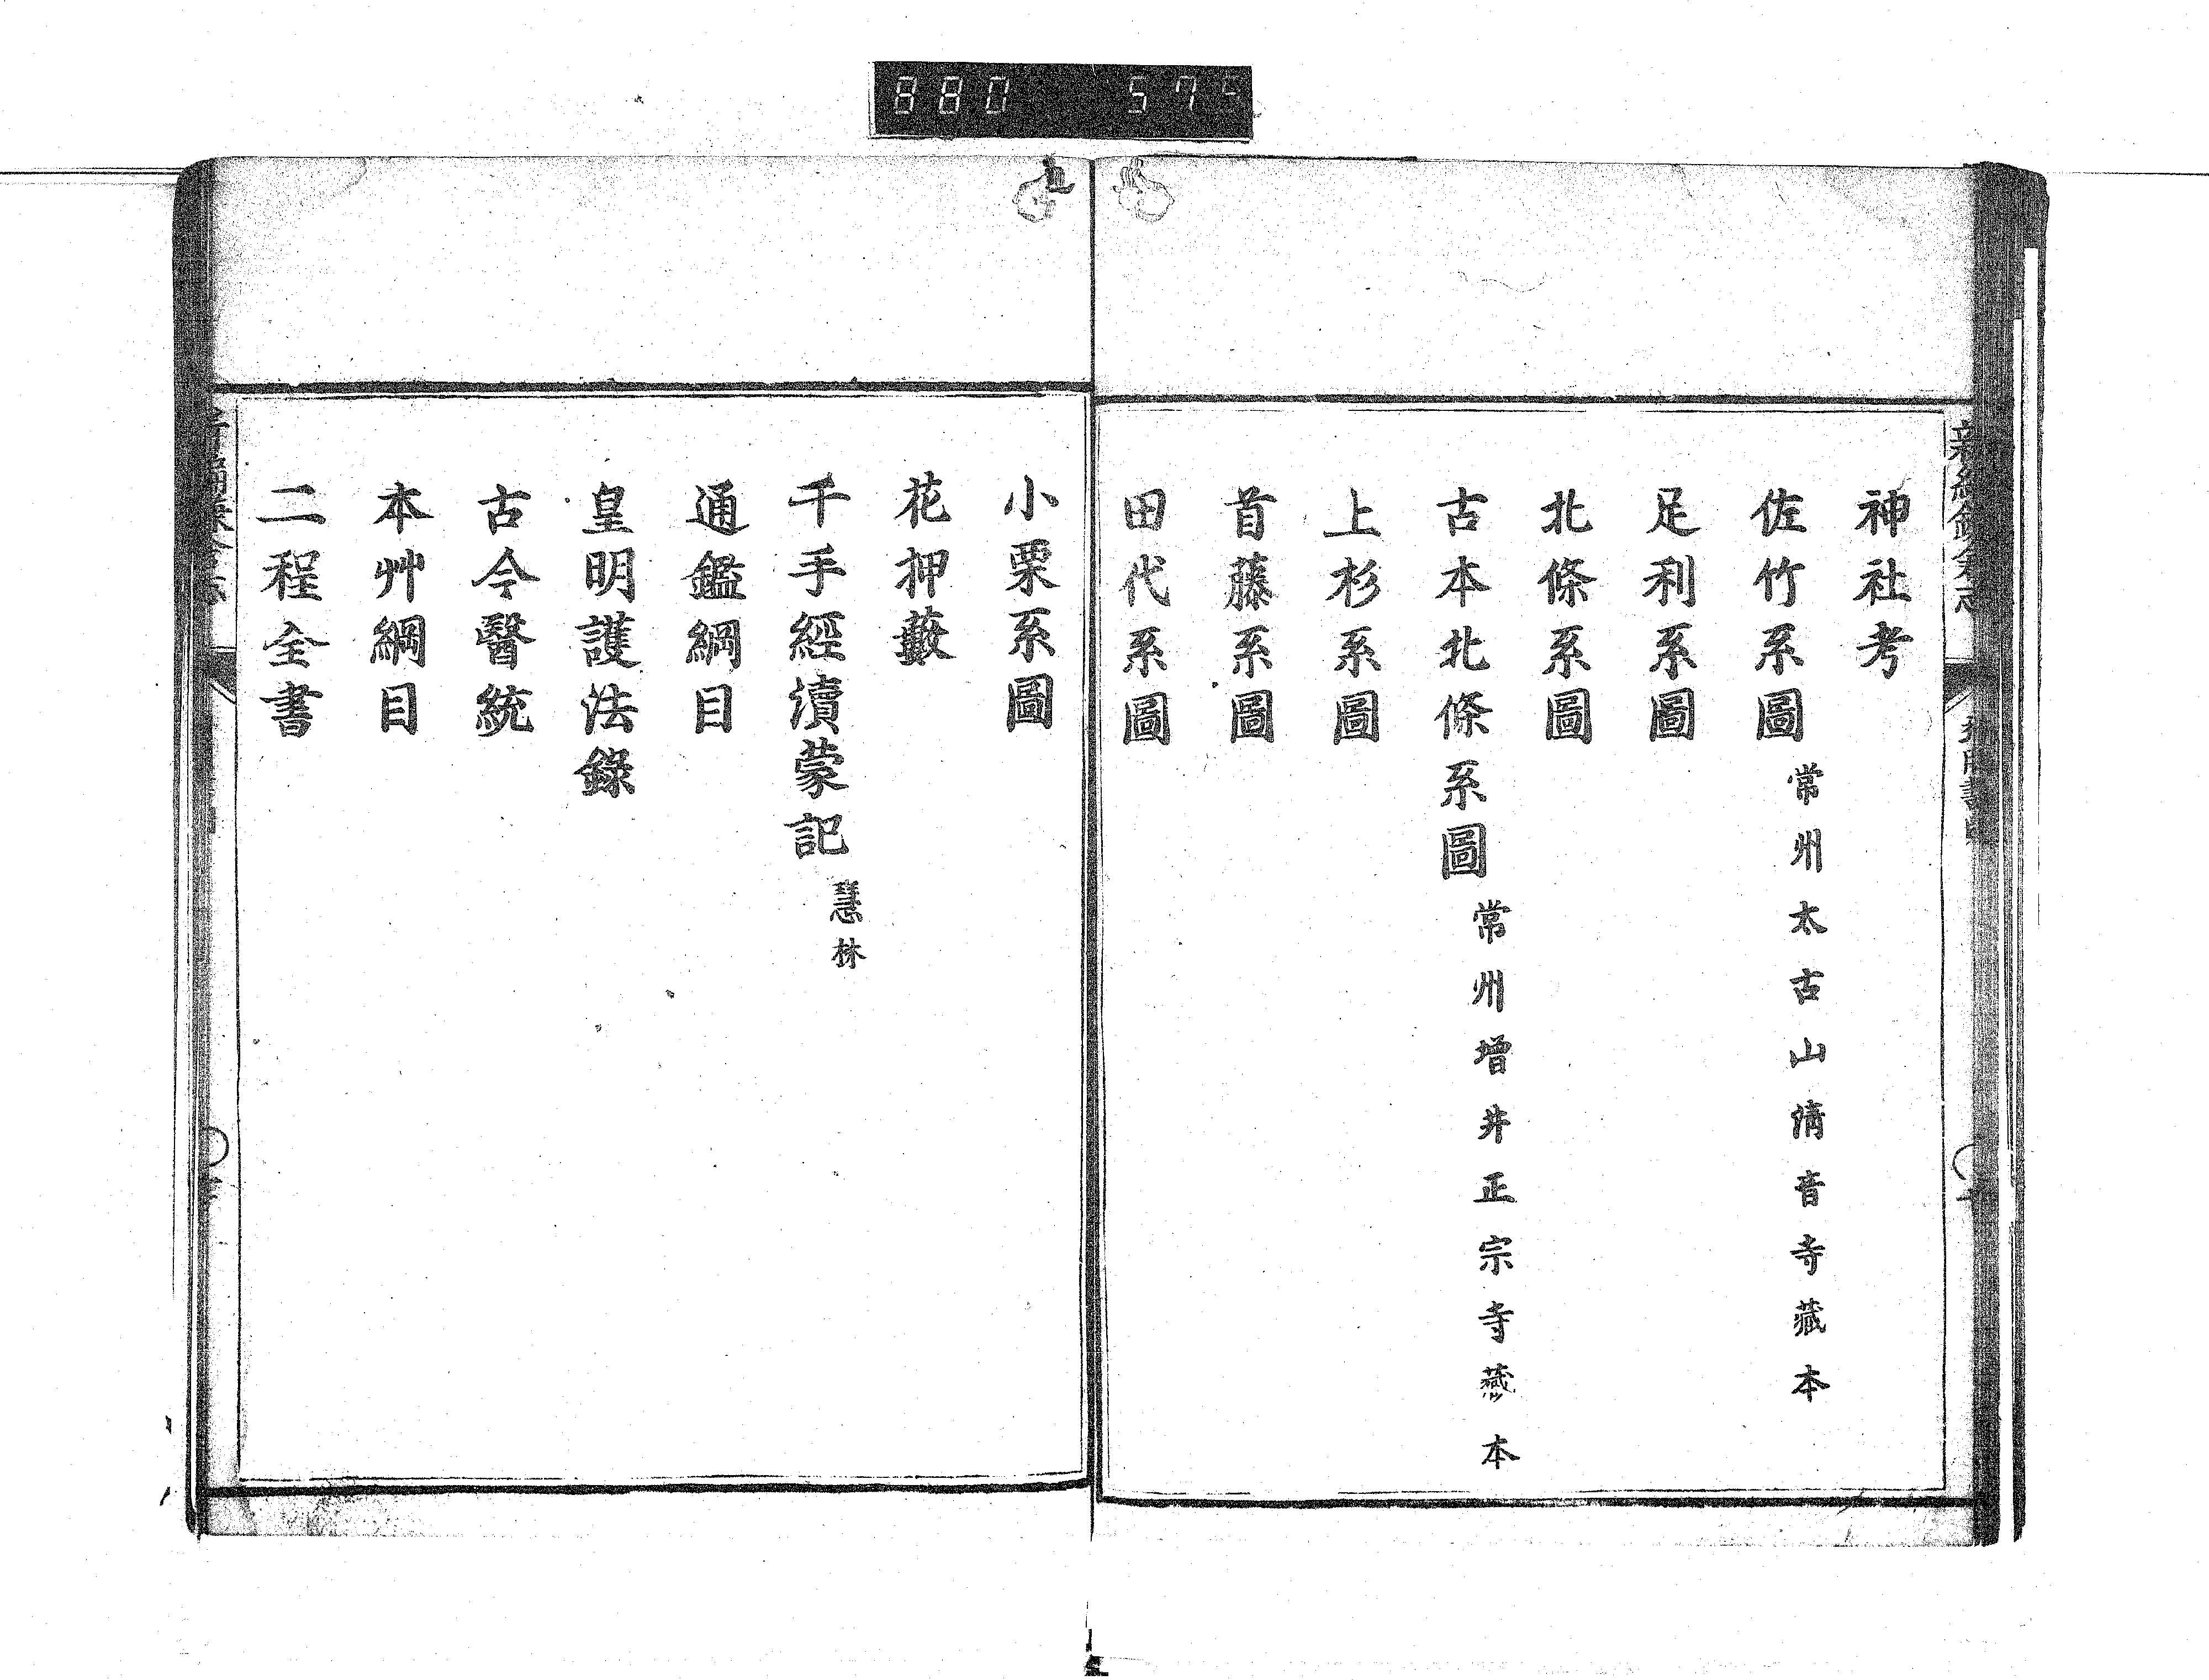 880 57
神社考
佐竹系圖 常州太古山清音寺藏本
足利系圖
北條系圖
古本北條系圖 常州增井正宗寺藏本
上杉系圖
首藤系圖
田代系圖
小栗系圖
花押藪
千手經瀆蒙記 慧林
通鑑綱目
皇明護法錄
古今醫統
本艸綱目
二程全書